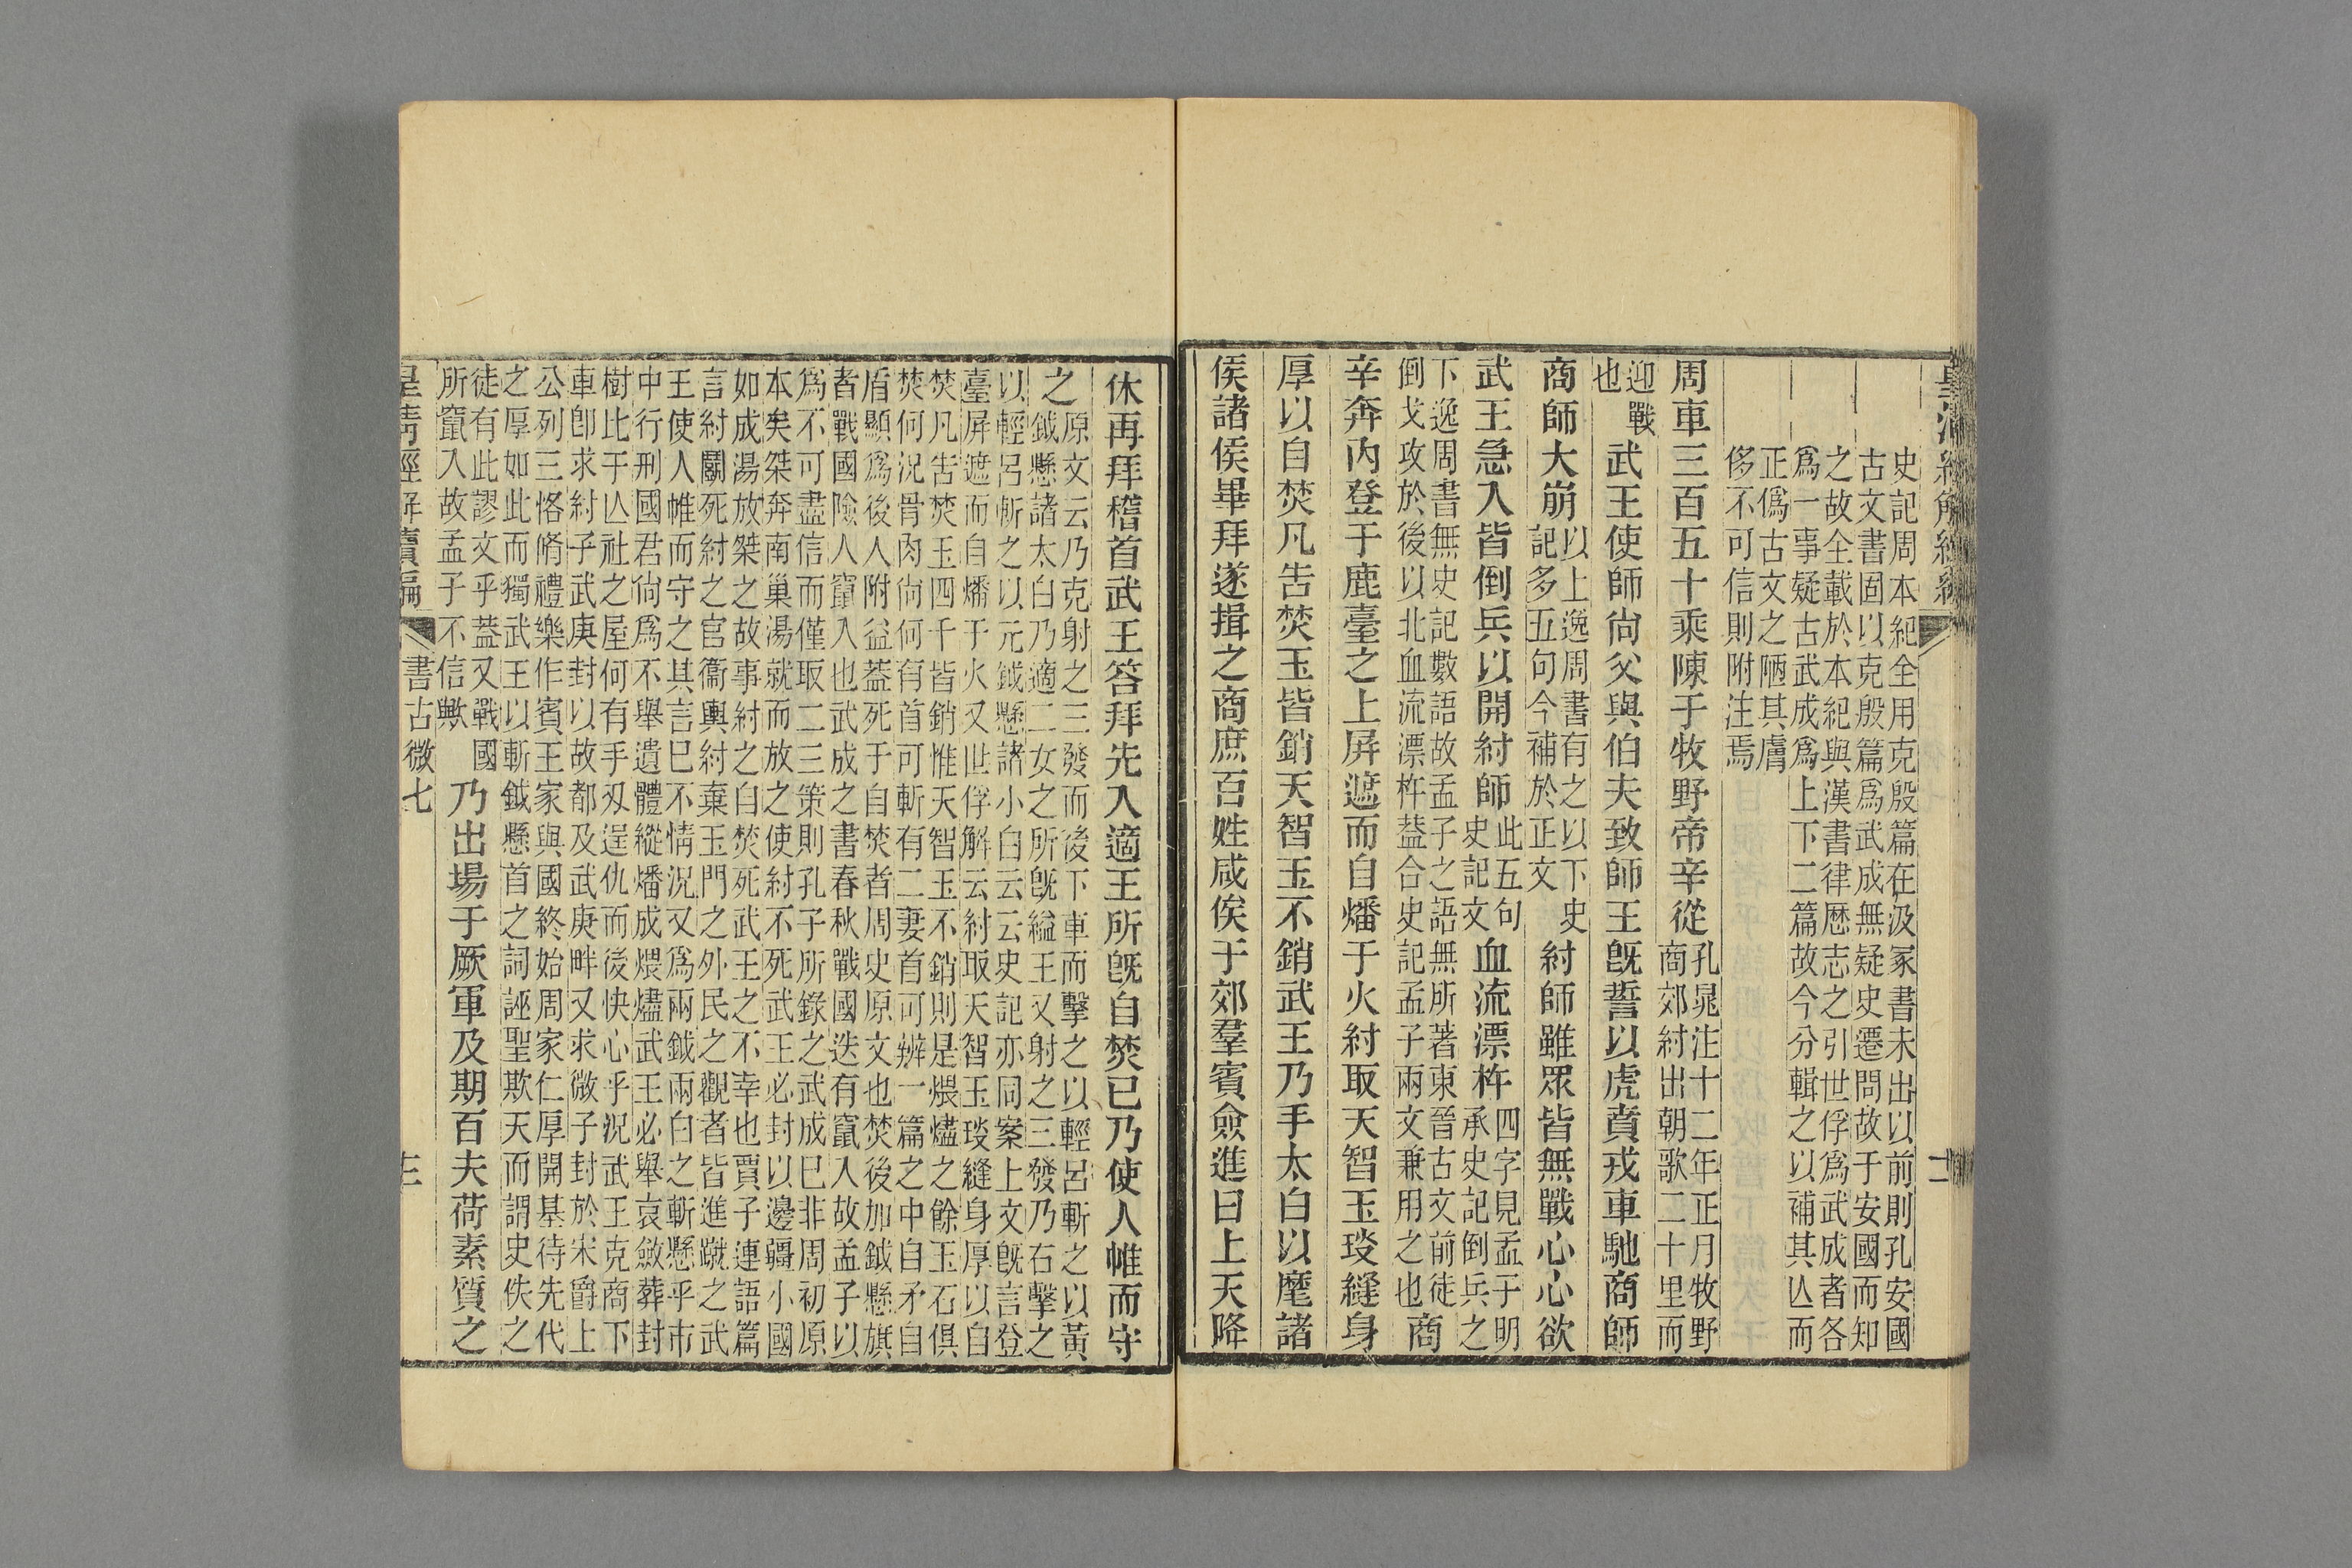 皇清經解續編
十二
史記周本紀全用克殷篇在汲冢書未出以前則孔安國
古文書固以克殷篇爲武成無疑史遷問故于安國而知
之故全載於本紀與漢書律厯志之引世俘爲武成者各
爲一事疑古武成爲上下二篇故今分輯之以補其亾而
正僞古文之陋其膚
侈不可信則附注焉
周車三百五十乘陳于牧野帝辛從孔晁注十二年正月牧野
商郊紂出朝歌二十里而
迎戰
也武王使師尙父與伯夫致師王旣誓以虎賁戎車馳商師
商師大崩以上逸周書有之以下史
記多五句今補於正文紂師雖眾皆無戰心心欲
武王急入皆倒兵以開紂師此五句
史記文血流漂杵四字見孟子明
承史記倒兵之
下逸周書無史記數語故孟子之語無所著東晉古文前徒
倒戈攻於後以北血流漂杵葢合史記孟子兩文兼用之也商
辛奔內登于鹿臺之上屏遮而自燔于火紂取天智玉琰縫身
厚以自焚凡告焚玉皆銷天智玉不銷武王乃手太白以麾諸
侯諸侯畢拜遂揖之商庶百姓咸俟于郊羣賓僉進曰上天降
休再拜稽首武王答拜先入適王所旣自焚已乃使人帷而守
之原文云乃克射之三發而後下車而擊之以輕呂斬之以黃
鉞懸諸太白乃適二女之所旣縊王又射之三發乃右擊之
以輕呂斬之以元鉞懸諸小白云云史記亦同案上文旣言登
臺屏遮而自燔于火又世俘解云紂取天智玉琰縫身厚以自
焚凡告焚玉四千皆銷惟天智玉不銷則是煨燼之餘玉石俱
焚何況骨肉尙何有首可斬有二妻首可辨一篇之中自矛自
盾顯爲後人附益葢死于自焚者周史原文也焚後加鉞懸旗
者戰國險人竄入也武成之書春秋戰國迭有竄入故孟子以
爲不可盡信而僅取二三策則孔子所錄之武成已非周初原
本矣桀奔南巢湯就而放之使紂不死武王必封以邊疆小國
如成湯放桀之故事紂之自焚死武王之不幸也賈子連語篇
言紂鬭死紂之官衞輿紂棄玉門之外民之觀者皆進蹴之武
王使人帷而守之其言巳不情況又爲兩鉞兩白之斬懸乎市
中行刑國君尙爲不舉遺體縱燔成煨燼武王必舉哀斂葬封
樹比于亾社之屋何有手刄逞仇而後快心乎況武王克商下
車卽求紂子武庚封以故都及武庚畔又求微子封於宋爵上
公列三恪脩禮樂作賓王家與國終始周家仁厚開基待先代
之厚如此而獨武王以斬鉞懸首之詞誣聖欺天而謂史佚之
徒有此謬文乎葢又戰國
所竄入故孟子不信歟乃出場于厥軍及期百夫荷素質之
皇清經解續編
書古微七
十三